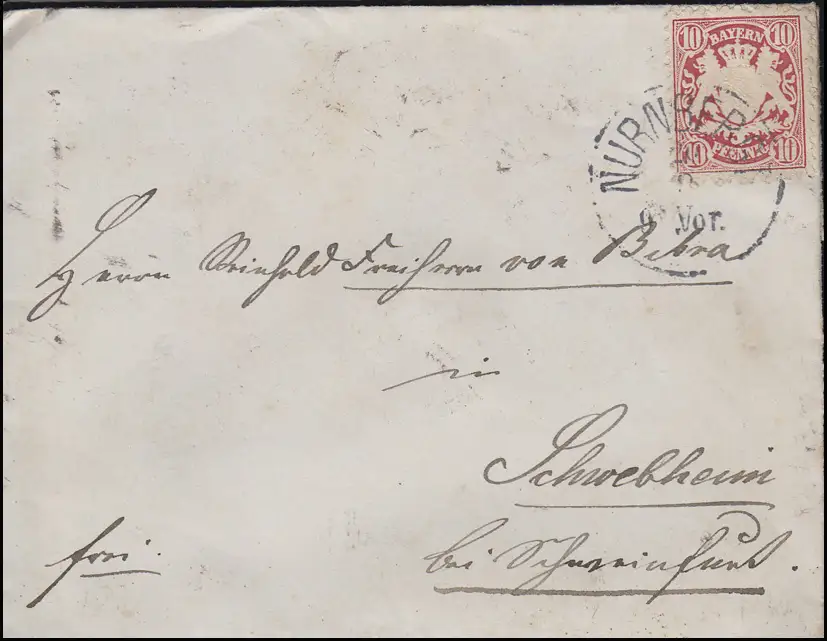 10 BAYERN 10
10 PFENNIG 10
NÜRNBERG
9 Vor.
Herrn Reinhold Freiherrn von Bibra
in
Schwebheim
bei Schweinfurt.
frei.